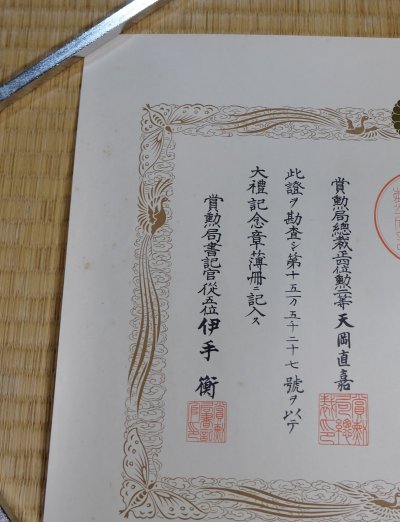 賞勲局總裁正四位勲二等天岡直嘉
此證ヲ勘査シ第十五万五千二十七號ヲ以テ
大禮記念章簿冊ニ記入ス
賞勲局書記官從五位伊手衡